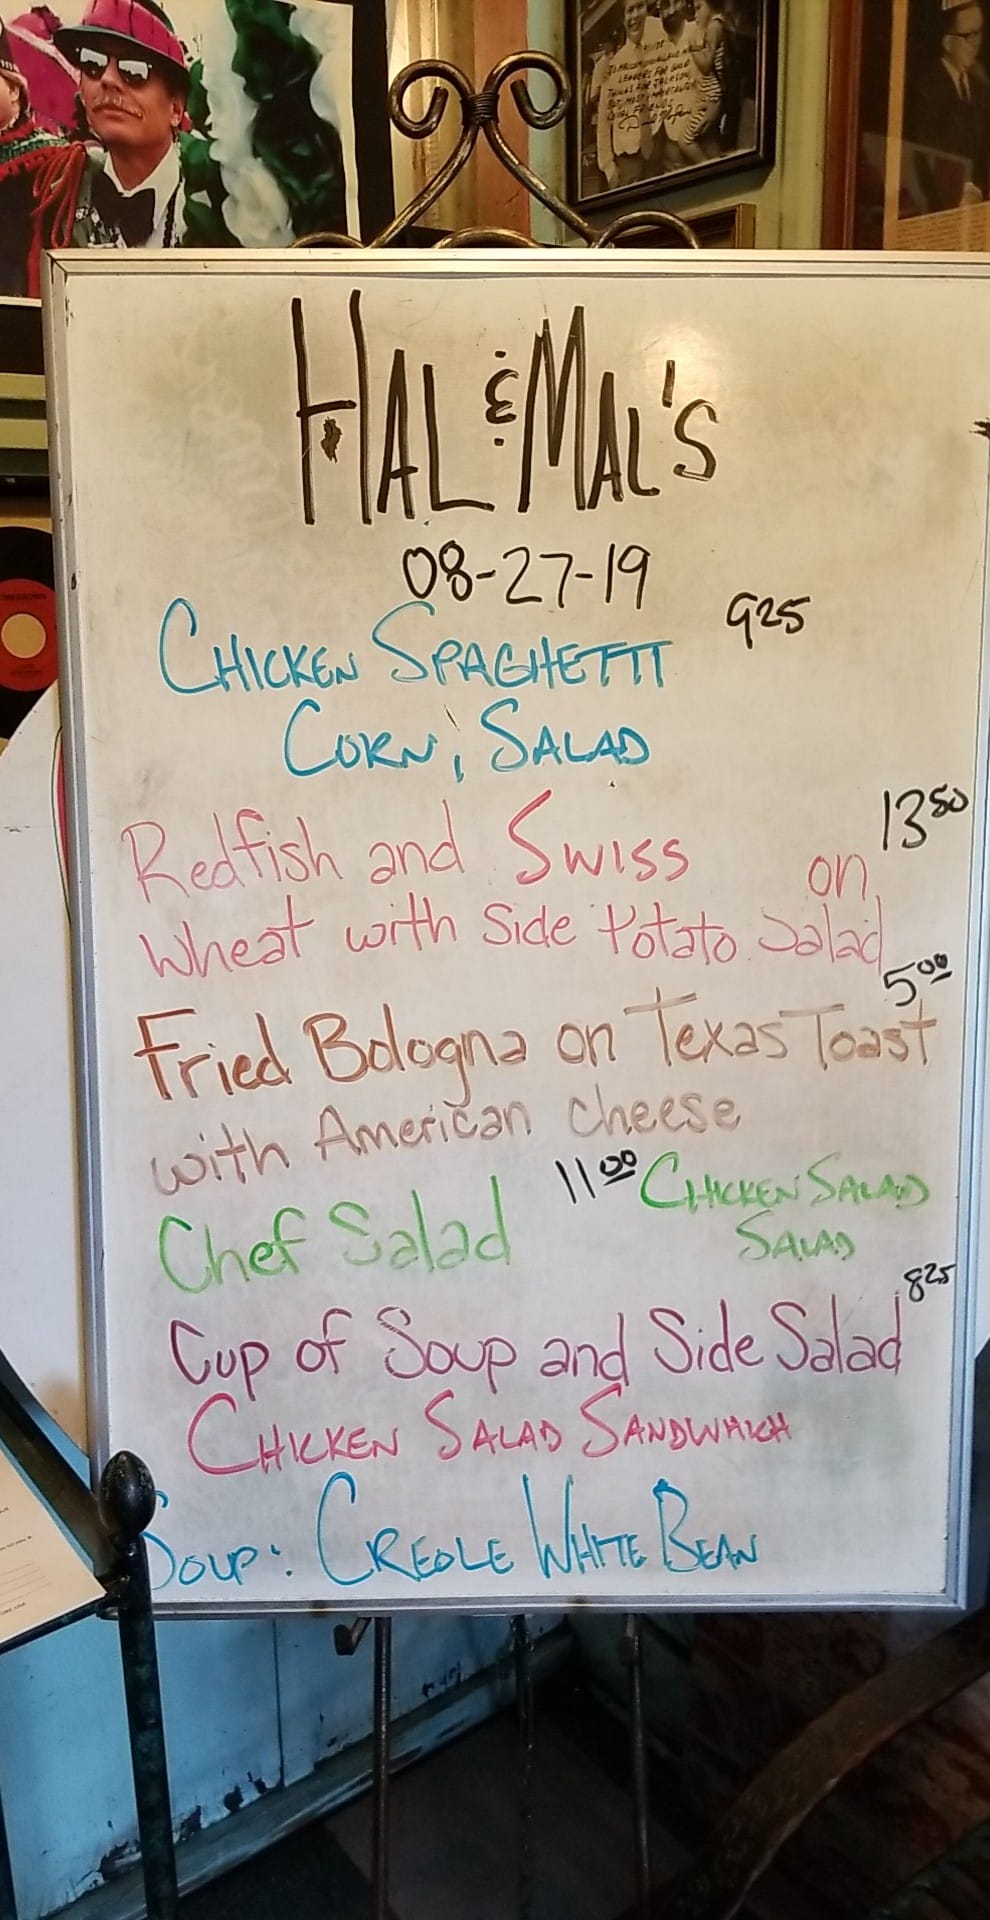 HAL & MAL'S
08-27-19
CHICKEN SPAGHETTI 9 25
CORN, SALAD
Redfish and SWISS on 13 50
Wheat with Side Potato Salad
Fried Bologna on Texas Toast 5 00
with American cheese
Chef Salad 11 00 CHICKEN SALAD
SALAD
Cup of Soup and Side Salad 8 25
CHICKEN SALAD SANDWHICH
SOUP: CREOLE WHITE BEAN